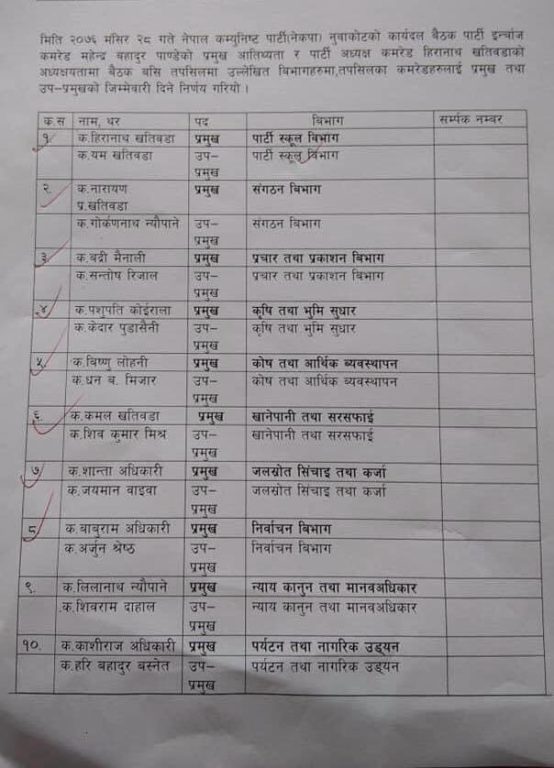 मिति २०७६ मंसिर २८ गते नेपाल कम्युनिष्ट पार्टी(नेकपा) नुवाकोटको कार्यदल बैठक पार्टी इन्चार्ज
कमरेड महेन्द्र बहादुर पाण्डेको प्रमुख आतिथ्यता र पार्टी अध्यक्ष कमरेड हिरानाथ खतिवडाको
अध्यक्षयतामा बैठक बसि तपसिलमा उल्लेखित बिभागहरुमा,तपसिलका कमरेडहरुलाई प्रमुख तथा
उप-प्रमुखको जिम्मेवारी दिने निर्णय गरियो ।
क.स नाम, थर पद बिभाग सर्म्पक नम्बर
१ क.हिरानाथ खतिवडा प्रमुख पार्टी स्कूल बिभाग
क.यम खतिवडा उप- पार्टी स्कूल बिभाग
प्रमुख
२. क.नारायण प्रमुख संगठन बिभाग
प्र.खतिवडा
क.गोर्कणनाथ न्यौपाने उप- संगठन बिभाग
प्रमुख
३. क.बद्री मैनाली प्रमुख प्रचार तथा प्रकाशन बिभाग
क.सन्तोष रिजाल उप- प्रचार तथा प्रकाशन बिभाग
प्रमुख
४ क.पशुपति कोईराला प्रमुख कृषि तथा भुमि सुधार
क.केदार पुडासैनी उप- कृषि तथा भुमि सुधार
प्रमुख
५. क.बिष्णु लोहनी प्रमुख कोष तथा आर्थिक ब्यवस्थापन
क.धन ब. मिजार उप- कोष तथा आर्थिक ब्यवस्थापन
प्रमुख
६. क.कमल खतिवडा प्रमुख खानेपानी तथा सरसफाई
क.शिव कुमार मिश्र उप- खानेपानी तथा सरसफाई
प्रमुख
७ क.शान्ता अधिकारी प्रमुख जलस्रोत सिंचाइ तथा कर्जा
क.जयमान वाइवा उप- जलस्रोत सिंचाइ तथा कर्जा
प्रमुख
८ क.बाबुराम अधिकारी प्रमुख निर्वाचन बिभाग
क.अर्जुन श्रेष्ठ उप- निर्वाचन बिभाग
प्रमुख
९. क.लिलानाथ न्यौपाने प्रमुख न्याय कानुन तथा मानवअधिकार
क.शिवराम दाहाल उप- न्याय कानुन तथा मानवअधिकार
प्रमुख
१०. क.काशीराज अधिकारी प्रमुख पर्यटन तथा नागरिक उड्यन
क.हरि बहादुर बस्नेत उप- पर्यटन तथा नागरिक उड्यन
प्रमुख